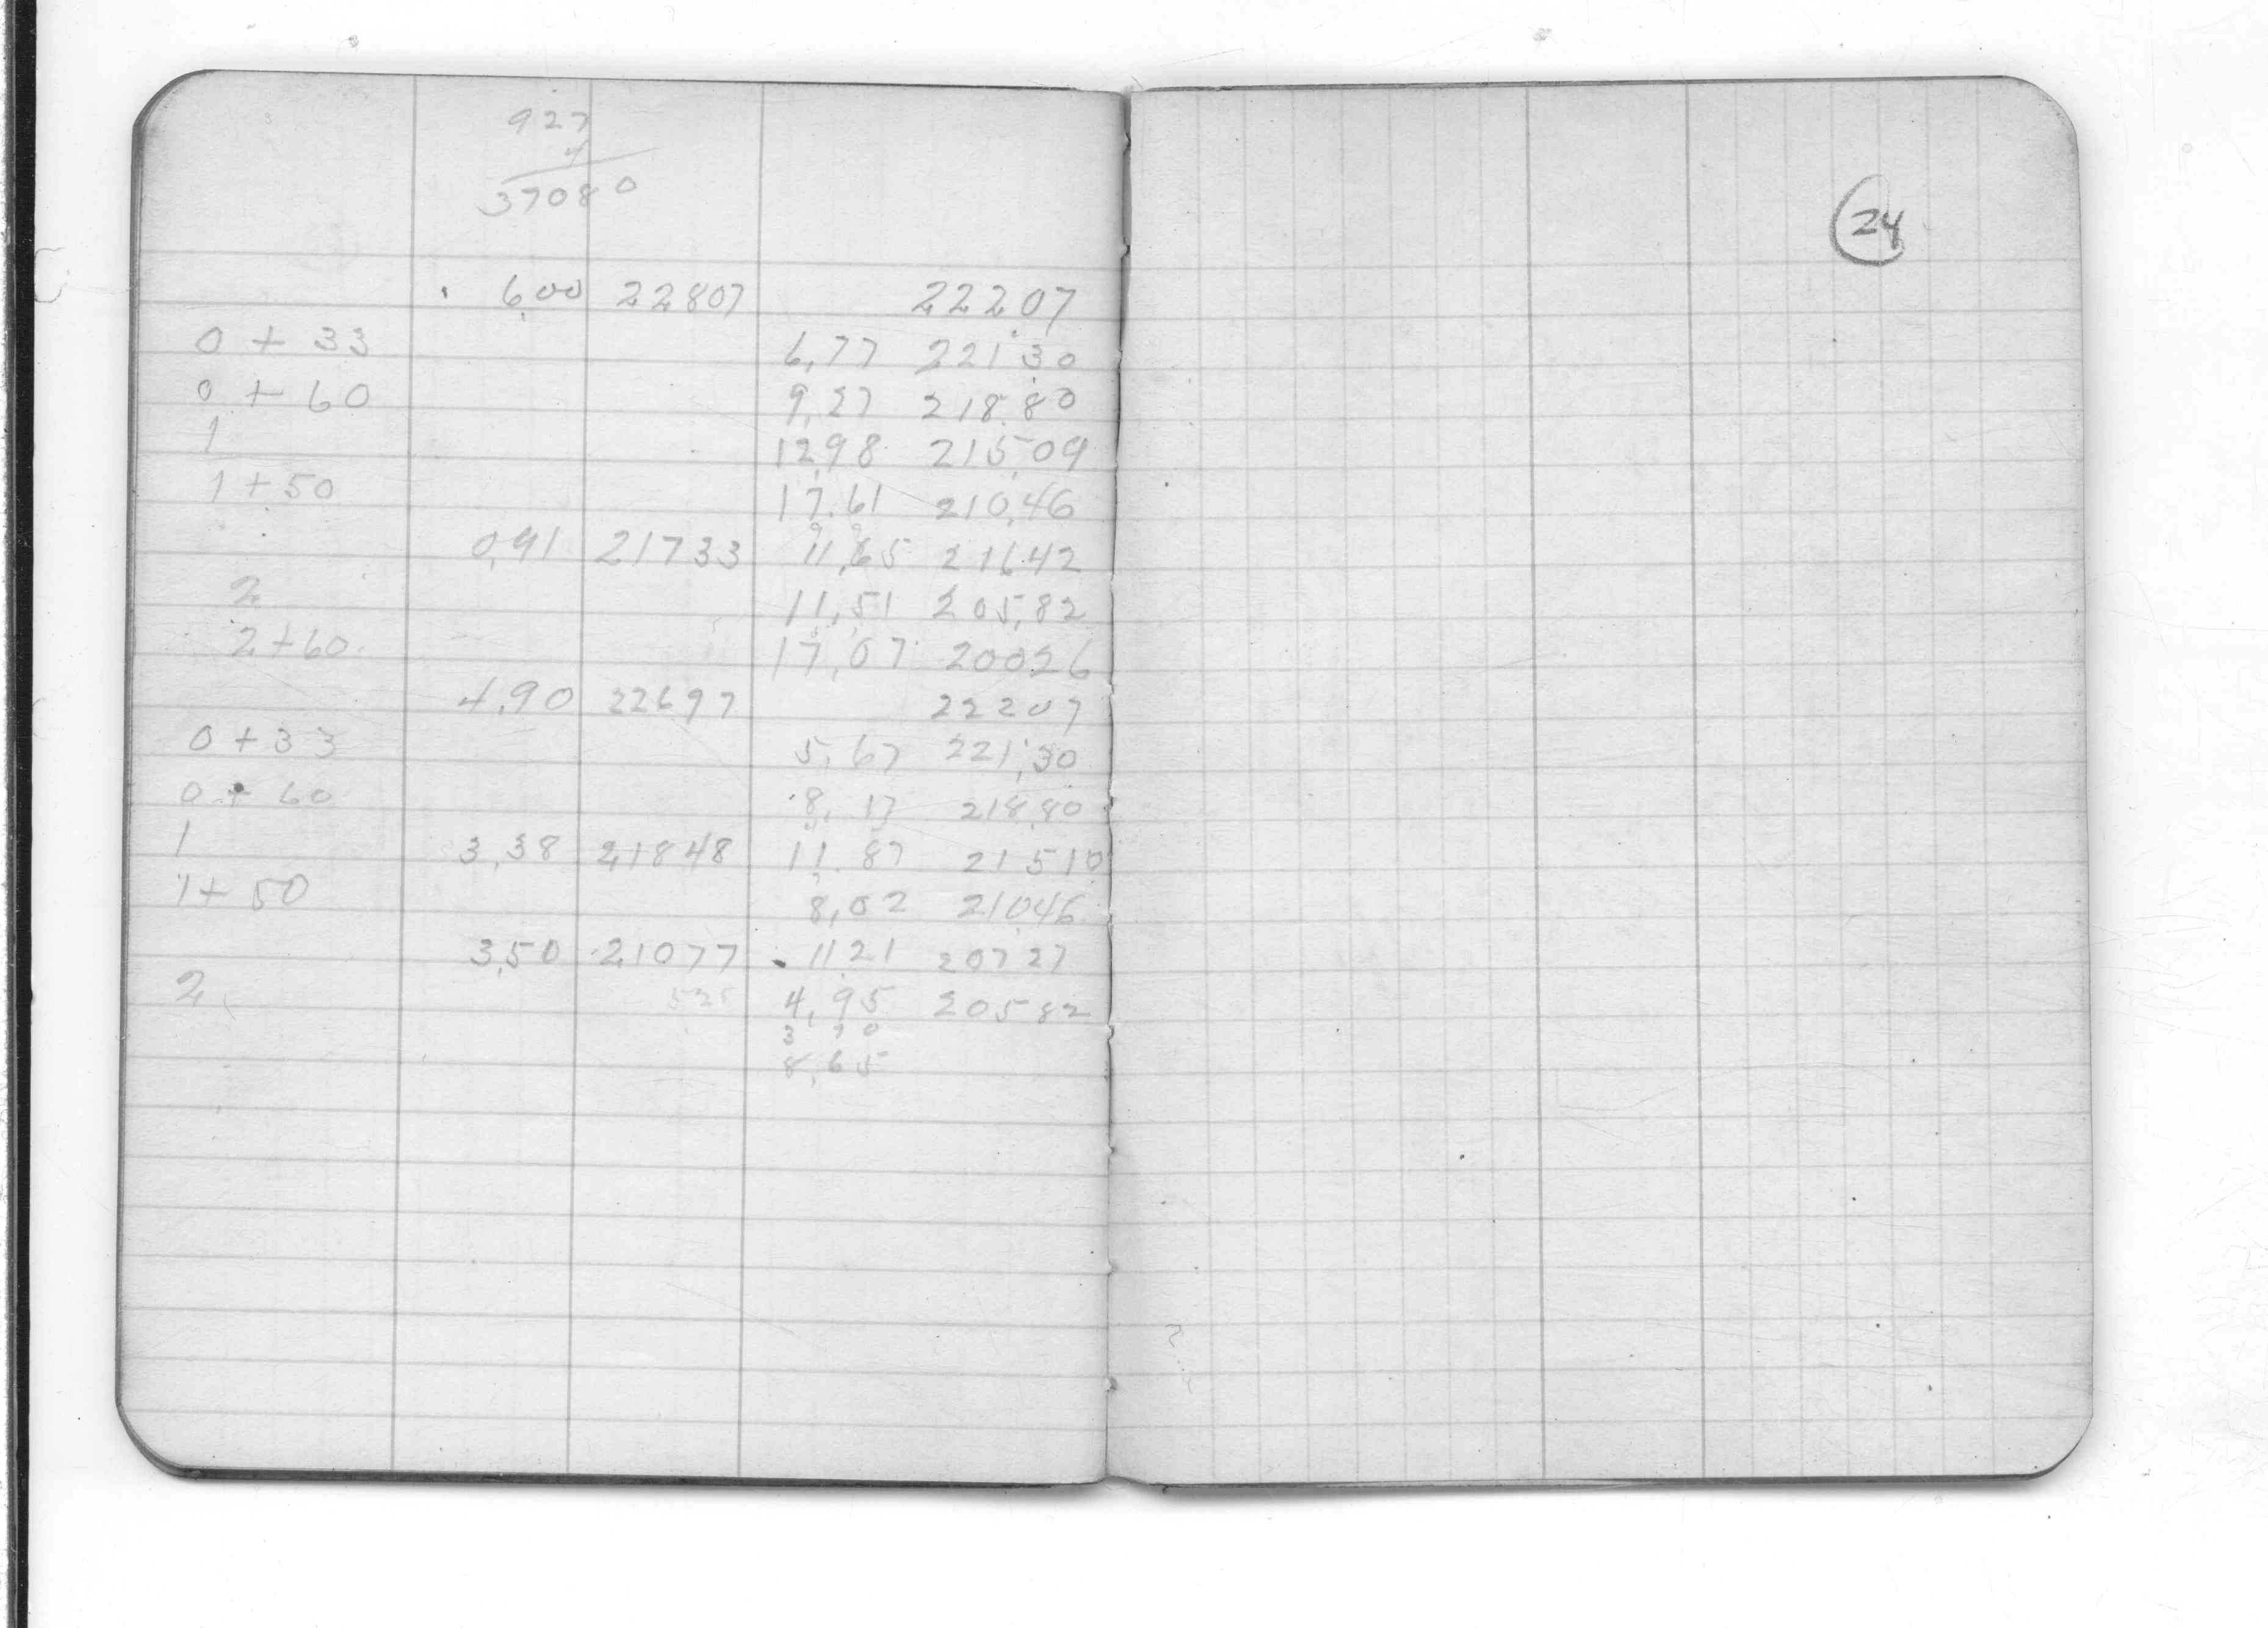 927
4
37080
24
6,00 22807 22207
0 + 33 6,77 221.30
0 + 60 9,27 218.80
1 12,98 215,09
1 + 50 17.61 210,46
0,91 21733 11,65 216.42
2 11,51 205,82
2 + 60 17,07 20026
4,90 22697 22207
0 + 33 5,67 221,30
0 + 60 8,17 218,80
1 3,38 21848 11.87 21510
1 + 50 8,02 21046
3,50 21077 1121 20727
2 525 4,95 20582
3 70
8,65